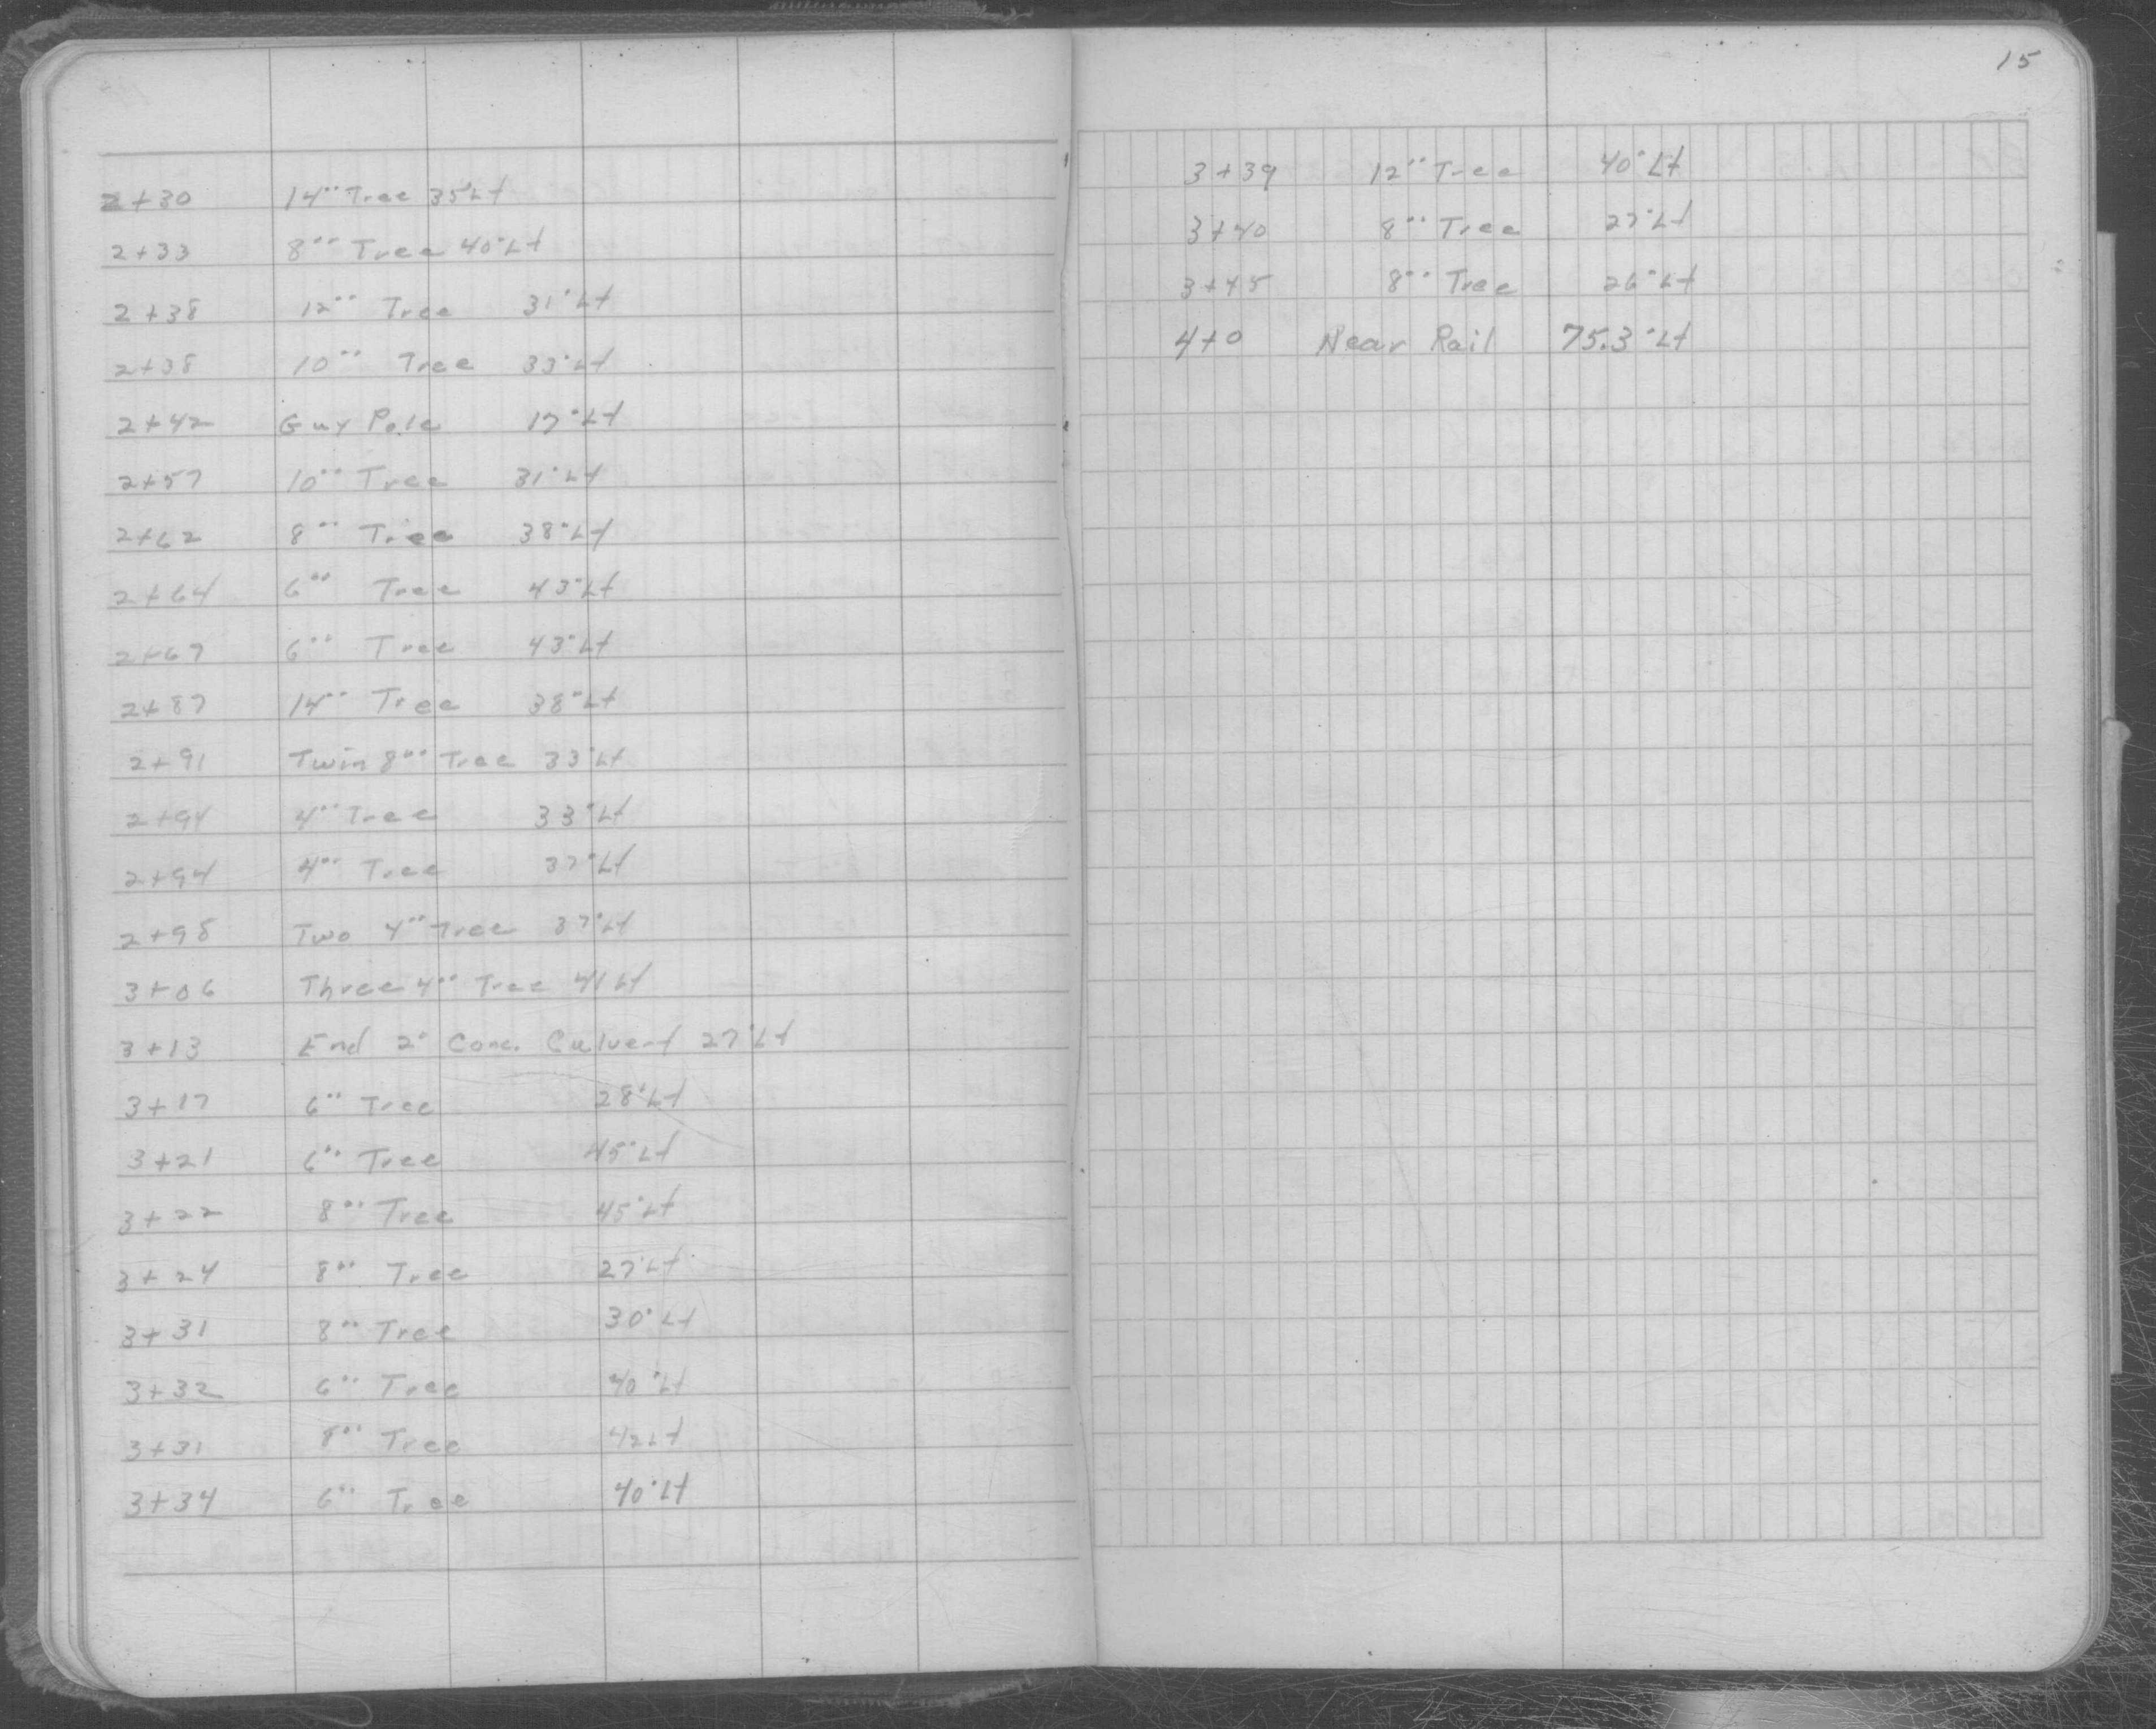 2+30 14" Tree 35'Lt
2+33 8" Tree 40'Lt
2+38 12" Tree 31'Lt
2+38 10" Tree 33'Lt
2+42 Guy Pole 17'Lt
2+57 10" Tree 31'Lt
2+62 8" Tree 38'Lt
2+64 6" Tree 43'Lt
2+67 6" Tree 43'Lt
2+87 14" Tree 38'Lt
2+91 Twin 8" Tree 33'Lt
2+94 4" Tree 33'Lt
2+94 4" Tree 37'Lt
2+98 Two 4" Tree 37'Lt
3+06 Three 4" Tree 41 Lt
3+13 End 2' Conc. Culvert 27'Lt
3+17 6" Tree 28'Lt
3+21 6" Tree 45'Lt
3+22 8" Tree 45'Lt
3+24 8" Tree 27'Lt
3+31 8" Tree 30'Lt
3+32 6" Tree 40'Lt
3+31 8" Tree 42Lt
3+34 6" Tree 40'Lt
15
3+39 12" Tree 40'Lt
3+40 8" Tree 27'Lt
3+45 8" Tree 26'Lt
4+0 Near Rail 75.3'Lt